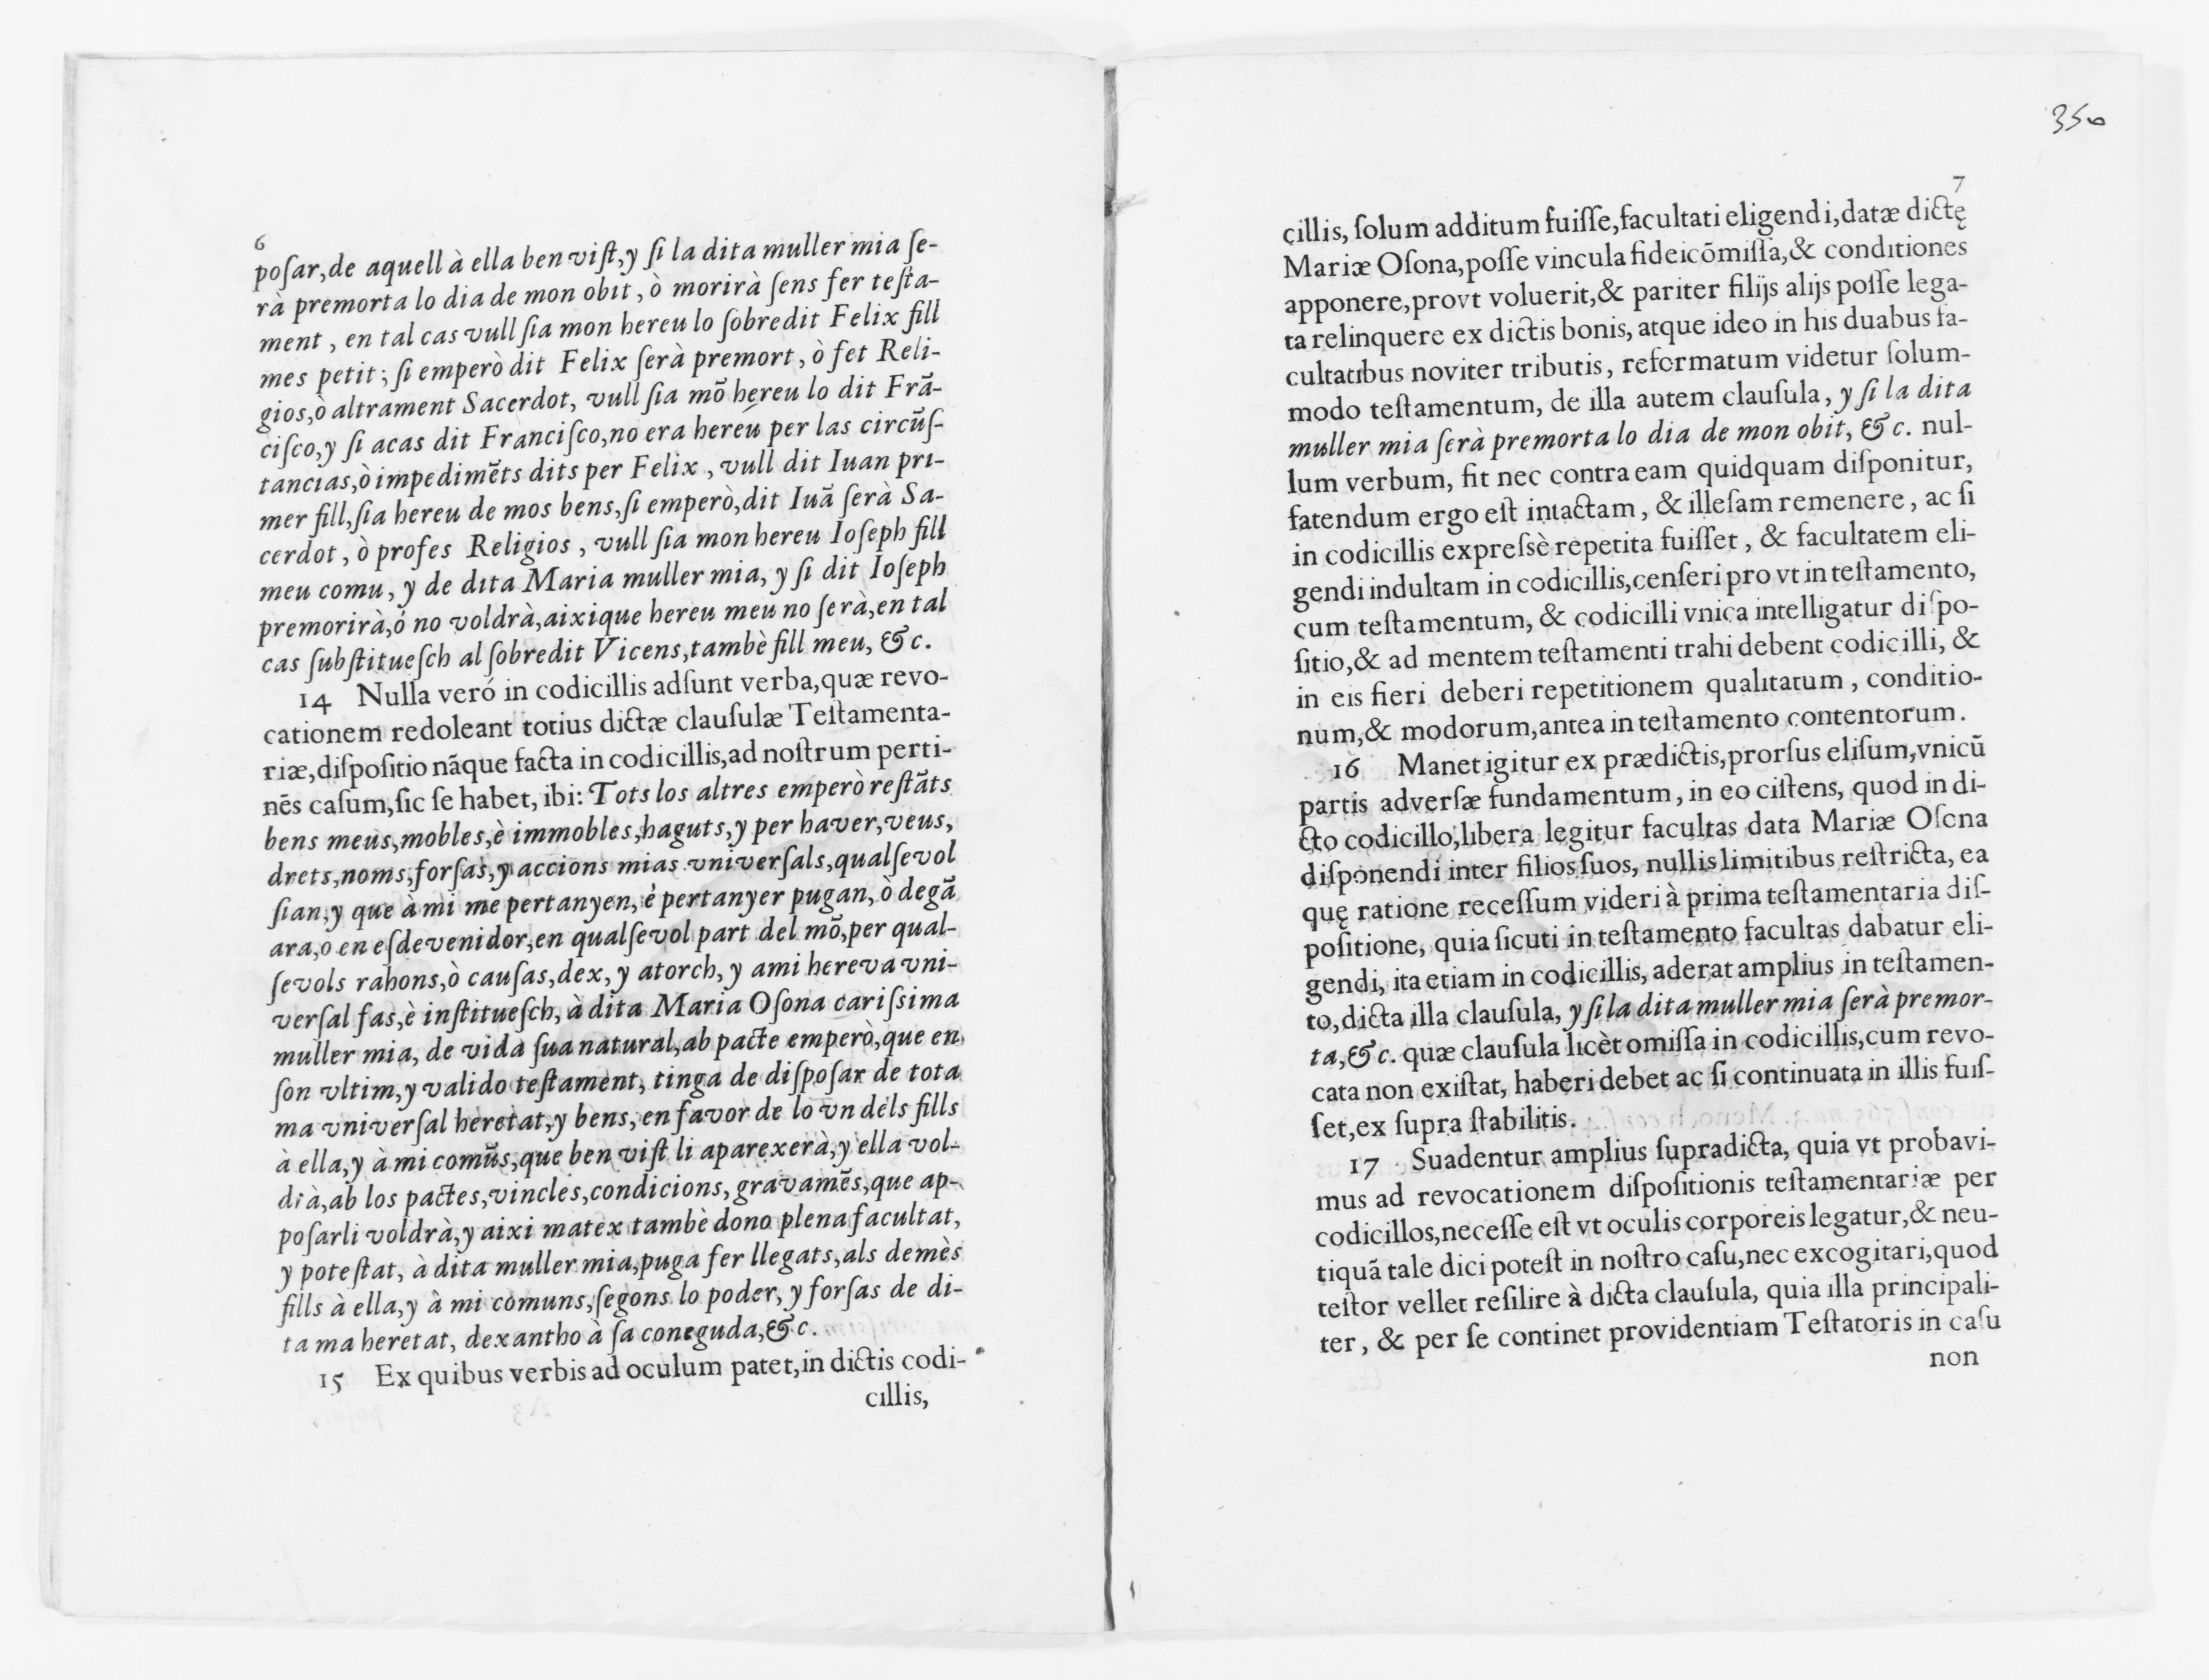 6
poſar,de aquell à ella ben viſt,y ſi la dita muller mia ſe-
rà premorta lo dia de mon obit, ò morirà ſens fer teſta-
ment, en tal cas vull ſia mon hereu lo ſobredit Felix fill
mes petit; ſi emperò dit Felix ſerà premort, ò fet Reli-
gios,ò altrament Sacerdot, vull ſia mõ hereu lo dit Frã-
ciſco,y ſi acas dit Franciſco,no era hereu per las circũſ-
tancias,ò impedimẽts dits per Felix, vull dit Iuan pri-
mer fill,ſia hereu de mos bens,ſi emperò,dit Iuã ſerà Sa-
cerdot, ò profes Religios, vull ſia mon hereu Ioſeph fill
meu comu, y de dita Maria muller mia, y ſi dit Ioſeph
premorirà,ó no voldrà,aixique hereu meu no ſerà,en tal
cas ſubſtitueſch al ſobredit Vicens,tambè fill meu, &c.
14 Nulla veró in codicillis adſunt verba,quæ revo-
cationem redoleant totius dictæ clauſulæ Teſtamenta-
riæ,diſpoſitio nãque facta in codicillis,ad noſtrum perti-
nẽs caſum,ſic ſe habet, ibi: Tots los altres emperò reſtãts
bens meus,mobles,è immobles,haguts,y per haver,veus,
drets,noms,forſas,y accions mias vniverſals,qualſevol
ſian,y que à mi me pertanyen, é pertanyer pugan, ò degã
ara,o en eſdevenidor,en qualſevol part del mõ,per qual-
ſevols rahons,ò cauſas,dex, y atorch, y ami hereva vni-
verſal fas,è inſtitueſch, à dita Maria Oſona cariſsima
muller mia, de vida ſua natural,ab pacte emperò,que en
ſon vltim,y valido teſtament, tinga de diſpoſar de tota
ma vniverſal heretat,y bens, en favor de lo vn dels fills
à ella,y à mi comũs,que ben viſt li aparexerà,y ella vol-
drà,ab los pactes,vincles,condicions, gravamẽs,que ap-
poſarli voldrà,y aixi matex tambè dono plena facultat,
y poteſtat, à dita muller mia,puga fer llegats,als demès
fills à ella,y à mi comuns,ſegons lo poder, y forſas de di-
ta ma heretat, dexantho à ſa coneguda,&c.
15 Ex quibus verbis ad oculum patet,in dictis codi-
cillis,
350
7
cillis, ſolum additum fuiſſe,facultati eligendi,datæ dictę
Mariæ Oſona,poſſe vincula fideicõmiſſa,& conditiones
apponere,provt voluerit,& pariter filijs alijs poſſe lega-
ta relinquere ex dictis bonis, atque ideo in his duabus fa-
cultatibus noviter tributis, reformatum videtur ſolum-
modo teſtamentum, de illa autem clauſula, y ſi la dita
muller mia ſerà premorta lo dia de mon obit, &c. nul-
lum verbum, fit nec contra eam quidquam diſponitur,
fatendum ergo eſt intactam, & illeſam remenere, ac ſi
in codicillis expreſsè repetita fuiſſet, & facultatem eli-
gendi indultam in codicillis,cenſeri pro vt in teſtamento,
cum teſtamentum, & codicilli vnica intelligatur diſpo-
ſitio,& ad mentem teſtamenti trahi debent codicilli, &
in eis fieri deberi repetitionem qualitatum, conditio-
num,& modorum,antea in teſtamento contentorum.
16 Manet igitur ex prædictis,prorſus eliſum,vnicũ
partis adverſæ fundamentum, in eo ciſtens, quod in di-
cto codicillo,libera legitur facultas data Mariæ Oſona
diſponendi inter filios ſuos, nullis limitibus reſtricta, ea
quę ratione receſſum videri à prima teſtamentaria diſ-
poſitione, quia ſicuti in teſtamento facultas dabatur eli-
gendi, ita etiam in codicillis, aderat amplius in teſtamen-
to,dicta illa clauſula, y ſi la dita muller mia ſerà premor-
ta,&c. quæ clauſula licèt omiſſa in codicillis,cum revo-
cata non exiſtat, haberi debet ac ſi continuata in illis fuiſ-
ſet,ex ſupra ſtabilitis.
17 Suadentur amplius ſupradicta, quia vt probavi-
mus ad revocationem diſpoſitionis teſtamentariæ per
codicillos,neceſſe eſt vt oculis corporeis legatur,& neu-
tiquã tale dici poteſt in noſtro caſu,nec excogitari,quod
teſtor vellet reſilire à dicta clauſula, quia illa principali-
ter, & per ſe continet providentiam Teſtatoris in caſu
non